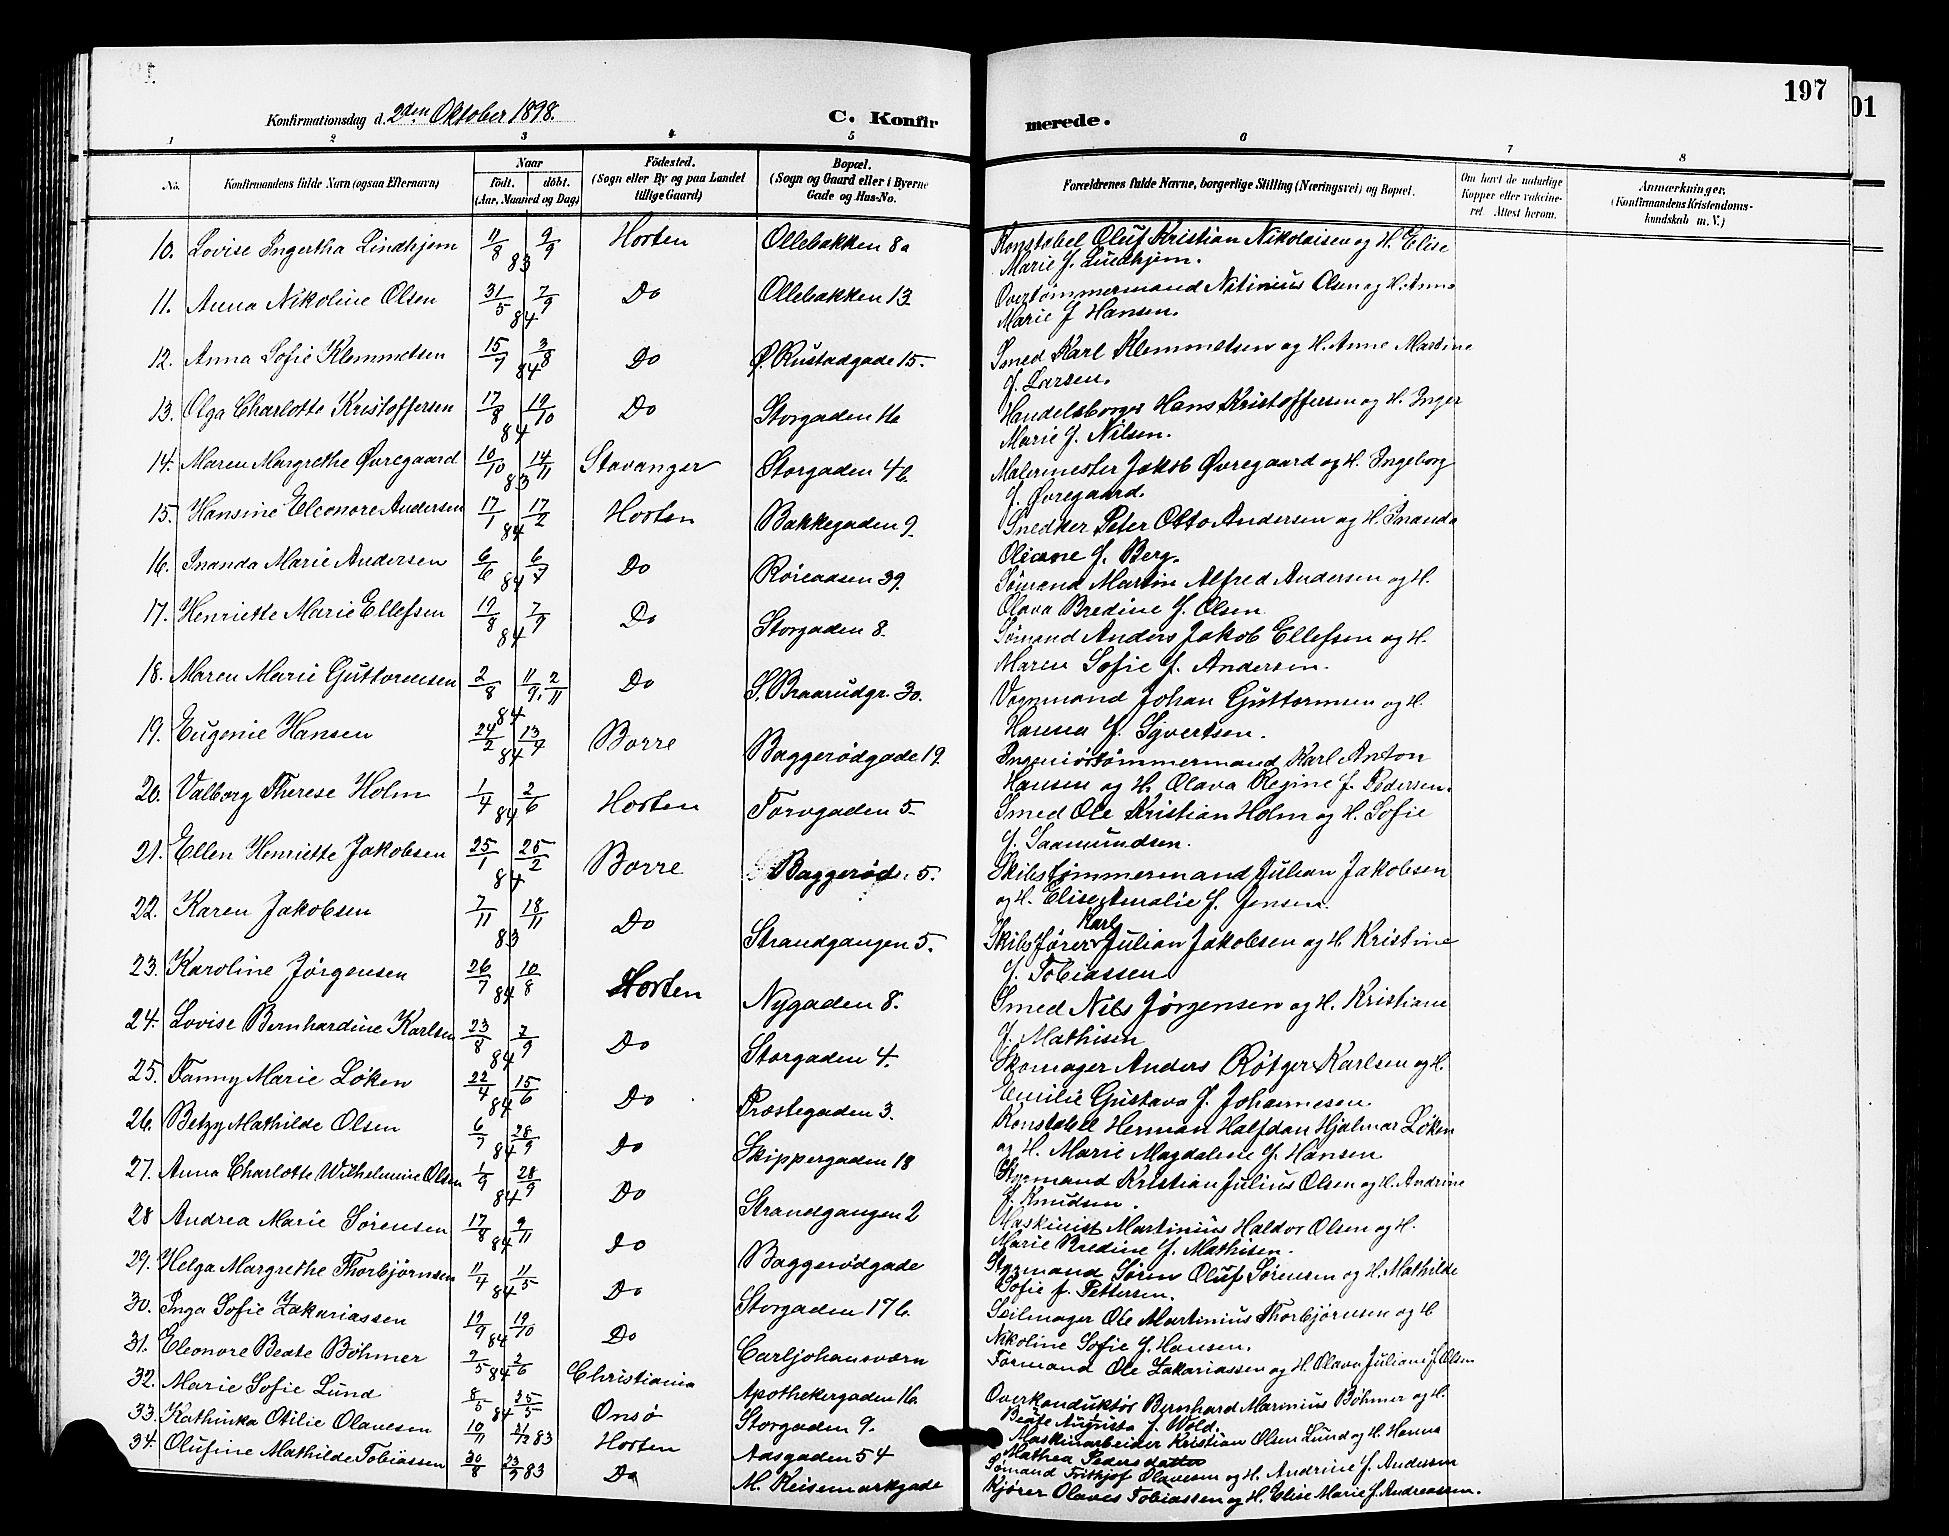 197
01
Konfirmationsdag d. 2den Oktober 1898.
C. Konfirmerede.
1 2 3 4 5 6 7 8
No. Konfirmandens fulde Navn (ogsaa Efternavn) Naar født. døbt. (Aar, Maaned og Dag) Fødested. (Sogn eller By og paa Landet tillige Gaard) Bopæl. (Sogn og Gaard eller i Byerne Gade og Hus-No. Forældrenes fulde Navne, borgerlige Stilling (Næringsvei) og Bopæl. Om havt de naturlige Kopper eller vaccineret. Attest herom. Anmærkninger. (Konfirmandens Kristendomskundskab m. V.)
10. Lovise Ingertha Lindhjem 11/8 83 9/9 Horten Ollebakken 8a Konstabel Oluf Kristian Nikolaisen og H. Elise
Marie f. Lindhjem.
11. Anna Nikoline Olsen 31/5 84 7/9 Do Ollebakken 13 Overtømmermand Nitinius Olsen og H. Anne
Marie f Hansen.
12. Anna Sofie Klemmetsen 15/7 84 3/8 Do Ø. Rustadgade 15. Smed Karl Klemmetsen og H. Anne Martine
f. Larsen.
13. Olga Charlotte Kristoffersen 17/8 84 19/10 Do Storgaden 16 Handelsborger Hans Kristoffersen og H. Inger
Marie f. Nilsen.
14. Maren Margrethe Øvregaard 10/10 83 14/11 Stavanger Storgaden 46. Malermester Jakob Øvregaard og H. Ingeborg
f. Øvregaard.
15. Hansine Eleonore Andersen 17/1 84 17/2 Horten Bakkegaden 9. Snedker Peter Otto Andersen og H. Inanda
Oliane f. Berg.
16. Inanda Marie Andersen 6/6 84 6/7 Do Røreaasen 39. Sømand Martin Alfred Andersen og H.
Olava Bredine f. Olsen
17. Henriette Marie Ellefsen 19/8 84 7/9 Do Storgaden 8. Sømand Anders Jakob Ellefsen og H.
Maren Sofie f. Andersen.
18. Maren Marie Guttormsen 2/8 84 11/9, 2/11 Do S. Braarudgr. 30. Vognmand Johan Guttormsen og H.
Hanna f. Syvertsen.
19. Eugenie Hansen 24/2 84 13/4 Borre Baggerødgade 19. Ingeniørtømmermand Karl Anton
Hansen og H. Olava Regine f. Pedersen.
20. Valborg Therese Holm 1/4 84 2/6 Horten Torvgaden 5. Smed Ole Kristian Holm og H. Sofie
f. Saamundsen.
21. Ellen Henriette Jakobsen 25/1 84 25/2 Borre Baggerød 5. Skibstømmermand Julian Jakobsen
og H. Elise Amalie f. Jensen.
22. Karen Jakobsen 7/11 83 18/11 Do Strandgangen 5. Skibsfører Karl Julian Jakobsen og H. Kristine
f. Tobiassen
23. Karoline Jørgensen 26/7 84 10/8 Horten Nygaden 8. Smed Nils Jørgensen og H. Kristiane
f. Mathisen
24. Lovise Bernhardine Karlsen 23/8 84 7/9 Do Storgaden 4. Skomager Anders Røtger Karlsen og H.
Emilie Gustava f. Johannesen.
25. Fanny Marie Løken 22/4 84 15/6 Do Præstegaden 3. Konstabel Herman Halfdan Hjalmar Løken
og H. Marie Magdalene f. Hansen
26. Betzy Mathilde Olsen 6/7 84 28/9 Do Skippergaden 18 Styrmand Kristian Julius Olsen og H. Andrine
f. Knudsen.
27. Anna Charlotte Wilhelmine Olsen 1/9 84 28/9 Do Strandgangen 2 Maskinist Martinius Haldor Olsen og H.
Marie Bredine f. Mathisen.
28 Andrea Marie Sørensen 17/8 84 9/11 Do Baggerødgade Styrmand Søren Oluf Sørensen og H. Mathilde
Sofie f. Pettersen.
29. Helga Margrethe Thorbjørnsen 11/4 84 11/5 Do Storgaden 176. Seilmager Ole Martinius Thorbjørnsen og H
Nikoline Sofie f. Hansen.
30. Inga Sofie Zakariassen 19/9 84 19/10 Do Carljohansværn Formand Ole Zakariassen og H. Olava Juliane f. Olsen
31. Eleonore Beate Bøhmer 2/5 84 2/6 Christiania Apothekergaden 16. Overkonduktør Bernhard Marinius Bøhmer og H.
Beate Augusta f. Wold.
32. Marie Sofie Lund 8/5 84 25/5 Onsø Storgaden 9. Maskinarbeider Kristian Olsen Lund og H. Hanna
Mathea Pedersdatter
33. Kathinka Otilie Olavesen 10/11 2/12 83 Horten Aasgaden 54 Sømand Frithjof Olavesen og H. Andrine f. Andersen
34. Olufine Mathilde Tobiassen 30/8 23/9 83 Do M. Reisemarkgade Kjører Olaves Tobiassen og H. Elise Marie f. Andreassen.